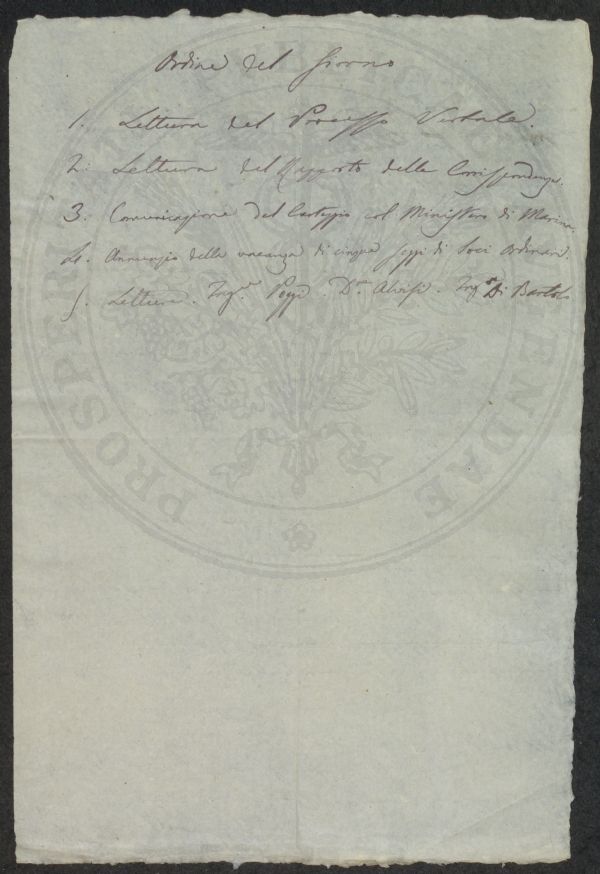 Ordine del Giorno
1. Lettura del Processo Verbale.
2. Lettura del Rapporto della Corrispondenza.
3. Comunicazione del Carteggio col Ministero di Marina
4. Annunzio della vacanza di cinque seggi di Soci Ordinari.
5. Letture. Ing.re D.r Ing.re Di Bartolo
PROSPERITATI AUGENDAE